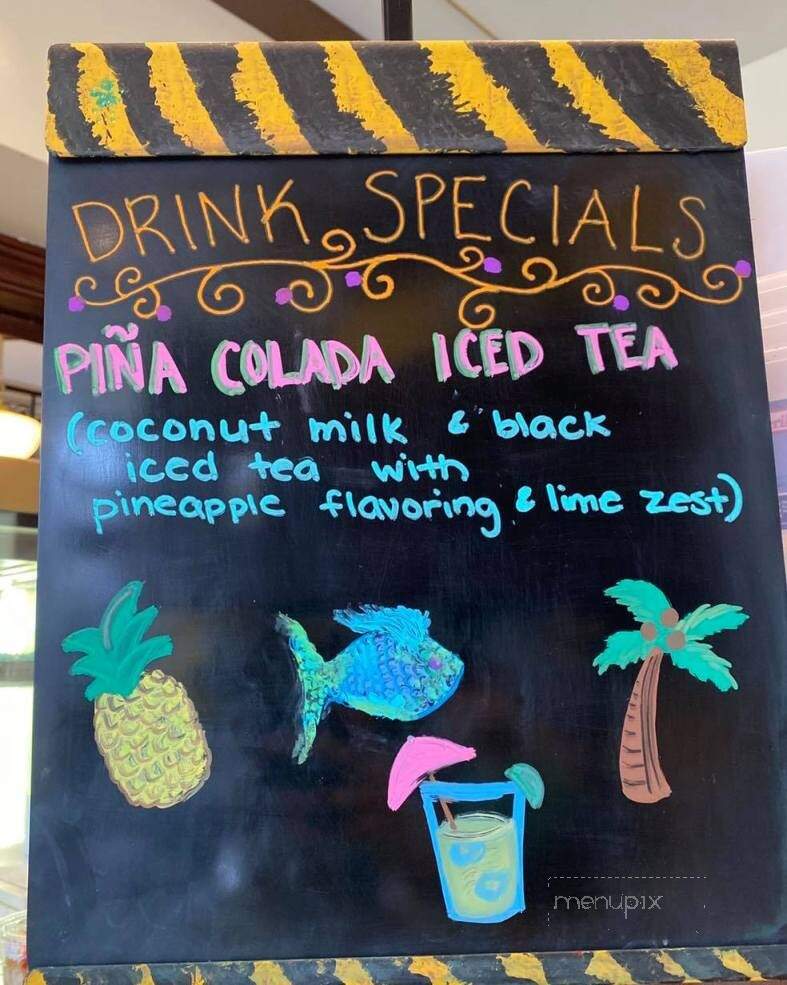 DRINK SPECIALS
PIÑA COLADA ICED TEA
(coconut milk & black
iced tea with
pineapple flavoring & lime zest)
menupix